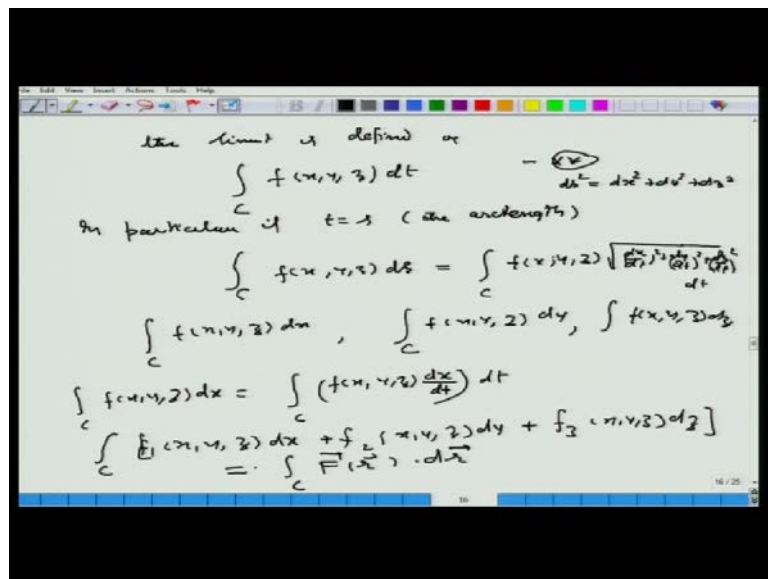 Edit View Insert Actions Tools Help
the limit is defined as
∫_C f(x,y,z) dt — (**)
ds² = dx² + dy² + dz²
In particular if t = s (the arclength)
∫_C f(x,y,z) ds = ∫_C f(x,y,z) √((dx/dt)² + (dy/dt)² + (dz/dt)²) dt
∫_C f(x,y,z) dx, ∫_C f(x,y,z) dy, ∫ f(x,y,z) dz
∫_C f(x,y,z) dx = ∫_C (f(x,y,z) dx/dt) dt
∫_C [f₁(x,y,z) dx + f₂(x,y,z) dy + f₃(x,y,z) dz]
= ∫_C F⃗(r⃗) · dr⃗
16 / 25
16